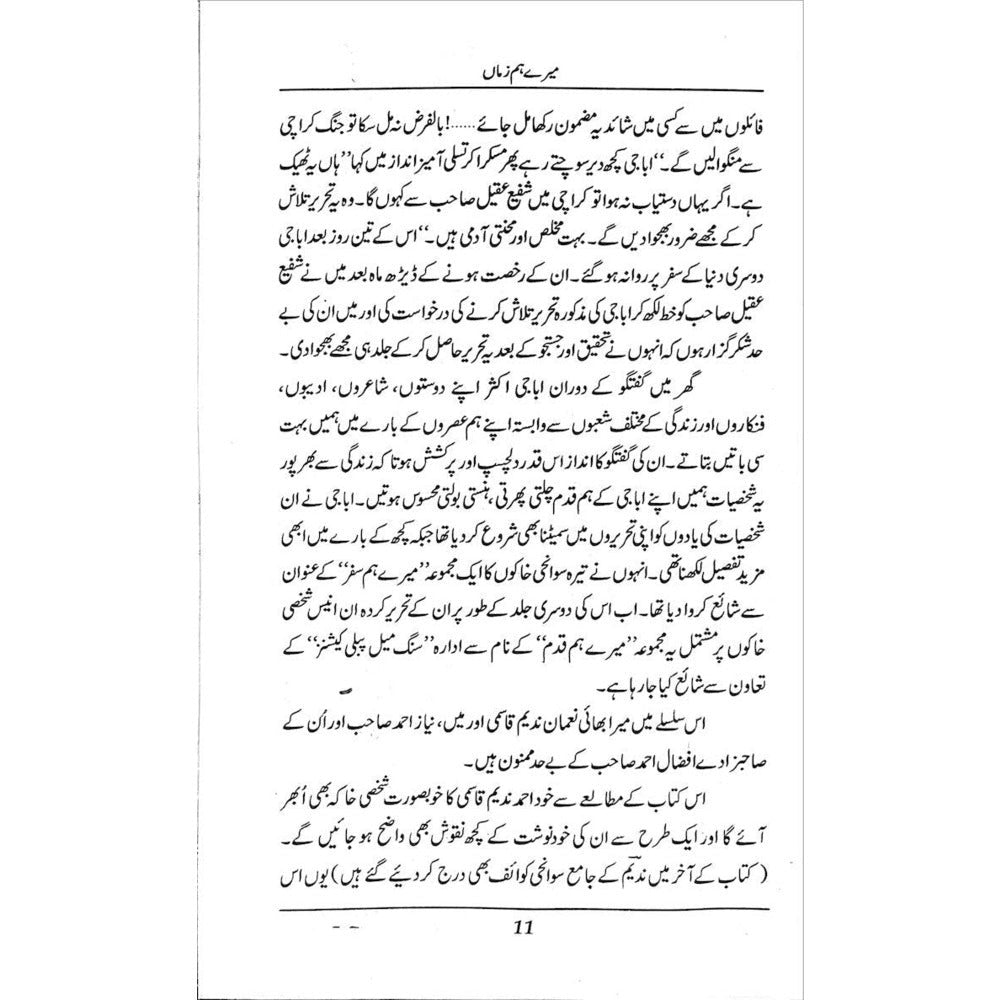 میرے ہم زماں
فائلوں میں سے کسی میں شائد یہ مضمون رکھا مل جائے......! بالفرض نہ مل سکا تو جنگ کراچی
سے منگوا لیں گے۔‘‘ ابا جی کچھ دیر سوچتے رہے پھر مسکرا کر تسلی آمیز انداز میں کہا ’’ہاں یہ ٹھیک
ہے۔ اگر یہاں دستیاب نہ ہوا تو کراچی میں شفیع عقیل صاحب سے کہوں گا۔ وہ یہ تحریر تلاش
کر کے مجھے ضرور بھجوا دیں گے۔ بہت مخلص اور محنتی آدمی ہیں۔‘‘ اس کے تین روز بعد ابا جی
دوسری دنیا کے سفر پر روانہ ہو گئے۔ ان کے رخصت ہونے کے ڈیڑھ ماہ بعد میں نے شفیع
عقیل صاحب کو خط لکھ کر ابا جی کی مذکورہ تحریر تلاش کرنے کی درخواست کی اور میں ان کی بے
حد شکر گزار ہوں کہ انہوں نے تحقیق اور جستجو کے بعد یہ تحریر حاصل کر کے جلد ہی مجھے بھجوا دی۔
گھر میں گفتگو کے دوران ابا جی اکثر اپنے دوستوں، شاعروں، ادیبوں،
فنکاروں اور زندگی کے مختلف شعبوں سے وابستہ اپنے ہم عصروں کے بارے میں ہمیں بہت
سی باتیں بتاتے۔ ان کی گفتگو کا انداز اس قدر دلچسپ اور پرکشش ہوتا کہ زندگی سے بھر پور
یہ شخصیات ہمیں اپنے ابا جی کے ہم قدم چلتی پھرتی، ہنستی بولتی محسوس ہوتیں۔ ابا جی نے ان
شخصیات کی یادوں کو اپنی تحریروں میں سمیٹنا بھی شروع کر دیا تھا جبکہ کچھ کے بارے میں ابھی
مزید تفصیل لکھنا تھی۔ انہوں نے تیرہ سوانحی خاکوں کا ایک مجموعہ ’’میرے ہم سفر‘‘ کے عنوان
سے شائع کروا دیا تھا۔ اب اس کی دوسری جلد کے طور پر ان کے تحریر کردہ ان انیس شخصی
خاکوں پر مشتمل یہ مجموعہ ’’میرے ہم قدم‘‘ کے نام سے ادارہ ’’سنگ میل پبلی کیشنز‘‘ کے
تعاون سے شائع کیا جا رہا ہے۔
اس سلسلے میں میرا بھائی نعمان ندیم قاسمی اور میں، نیاز احمد صاحب اور اُن کے
صاحبزادے افضال احمد صاحب کے بے حد ممنون ہیں۔
اس کتاب کے مطالعے سے خود احمد ندیم قاسمی کا خوبصورت شخصی خاکہ بھی اُبھر
آئے گا اور ایک طرح سے ان کی خودنوشت کے کچھ نقوش بھی واضح ہو جائیں گے۔
(کتاب کے آخر میں ندیمؔ کے جامع سوانحی کوائف بھی درج کر دیئے گئے ہیں) یوں اس
11